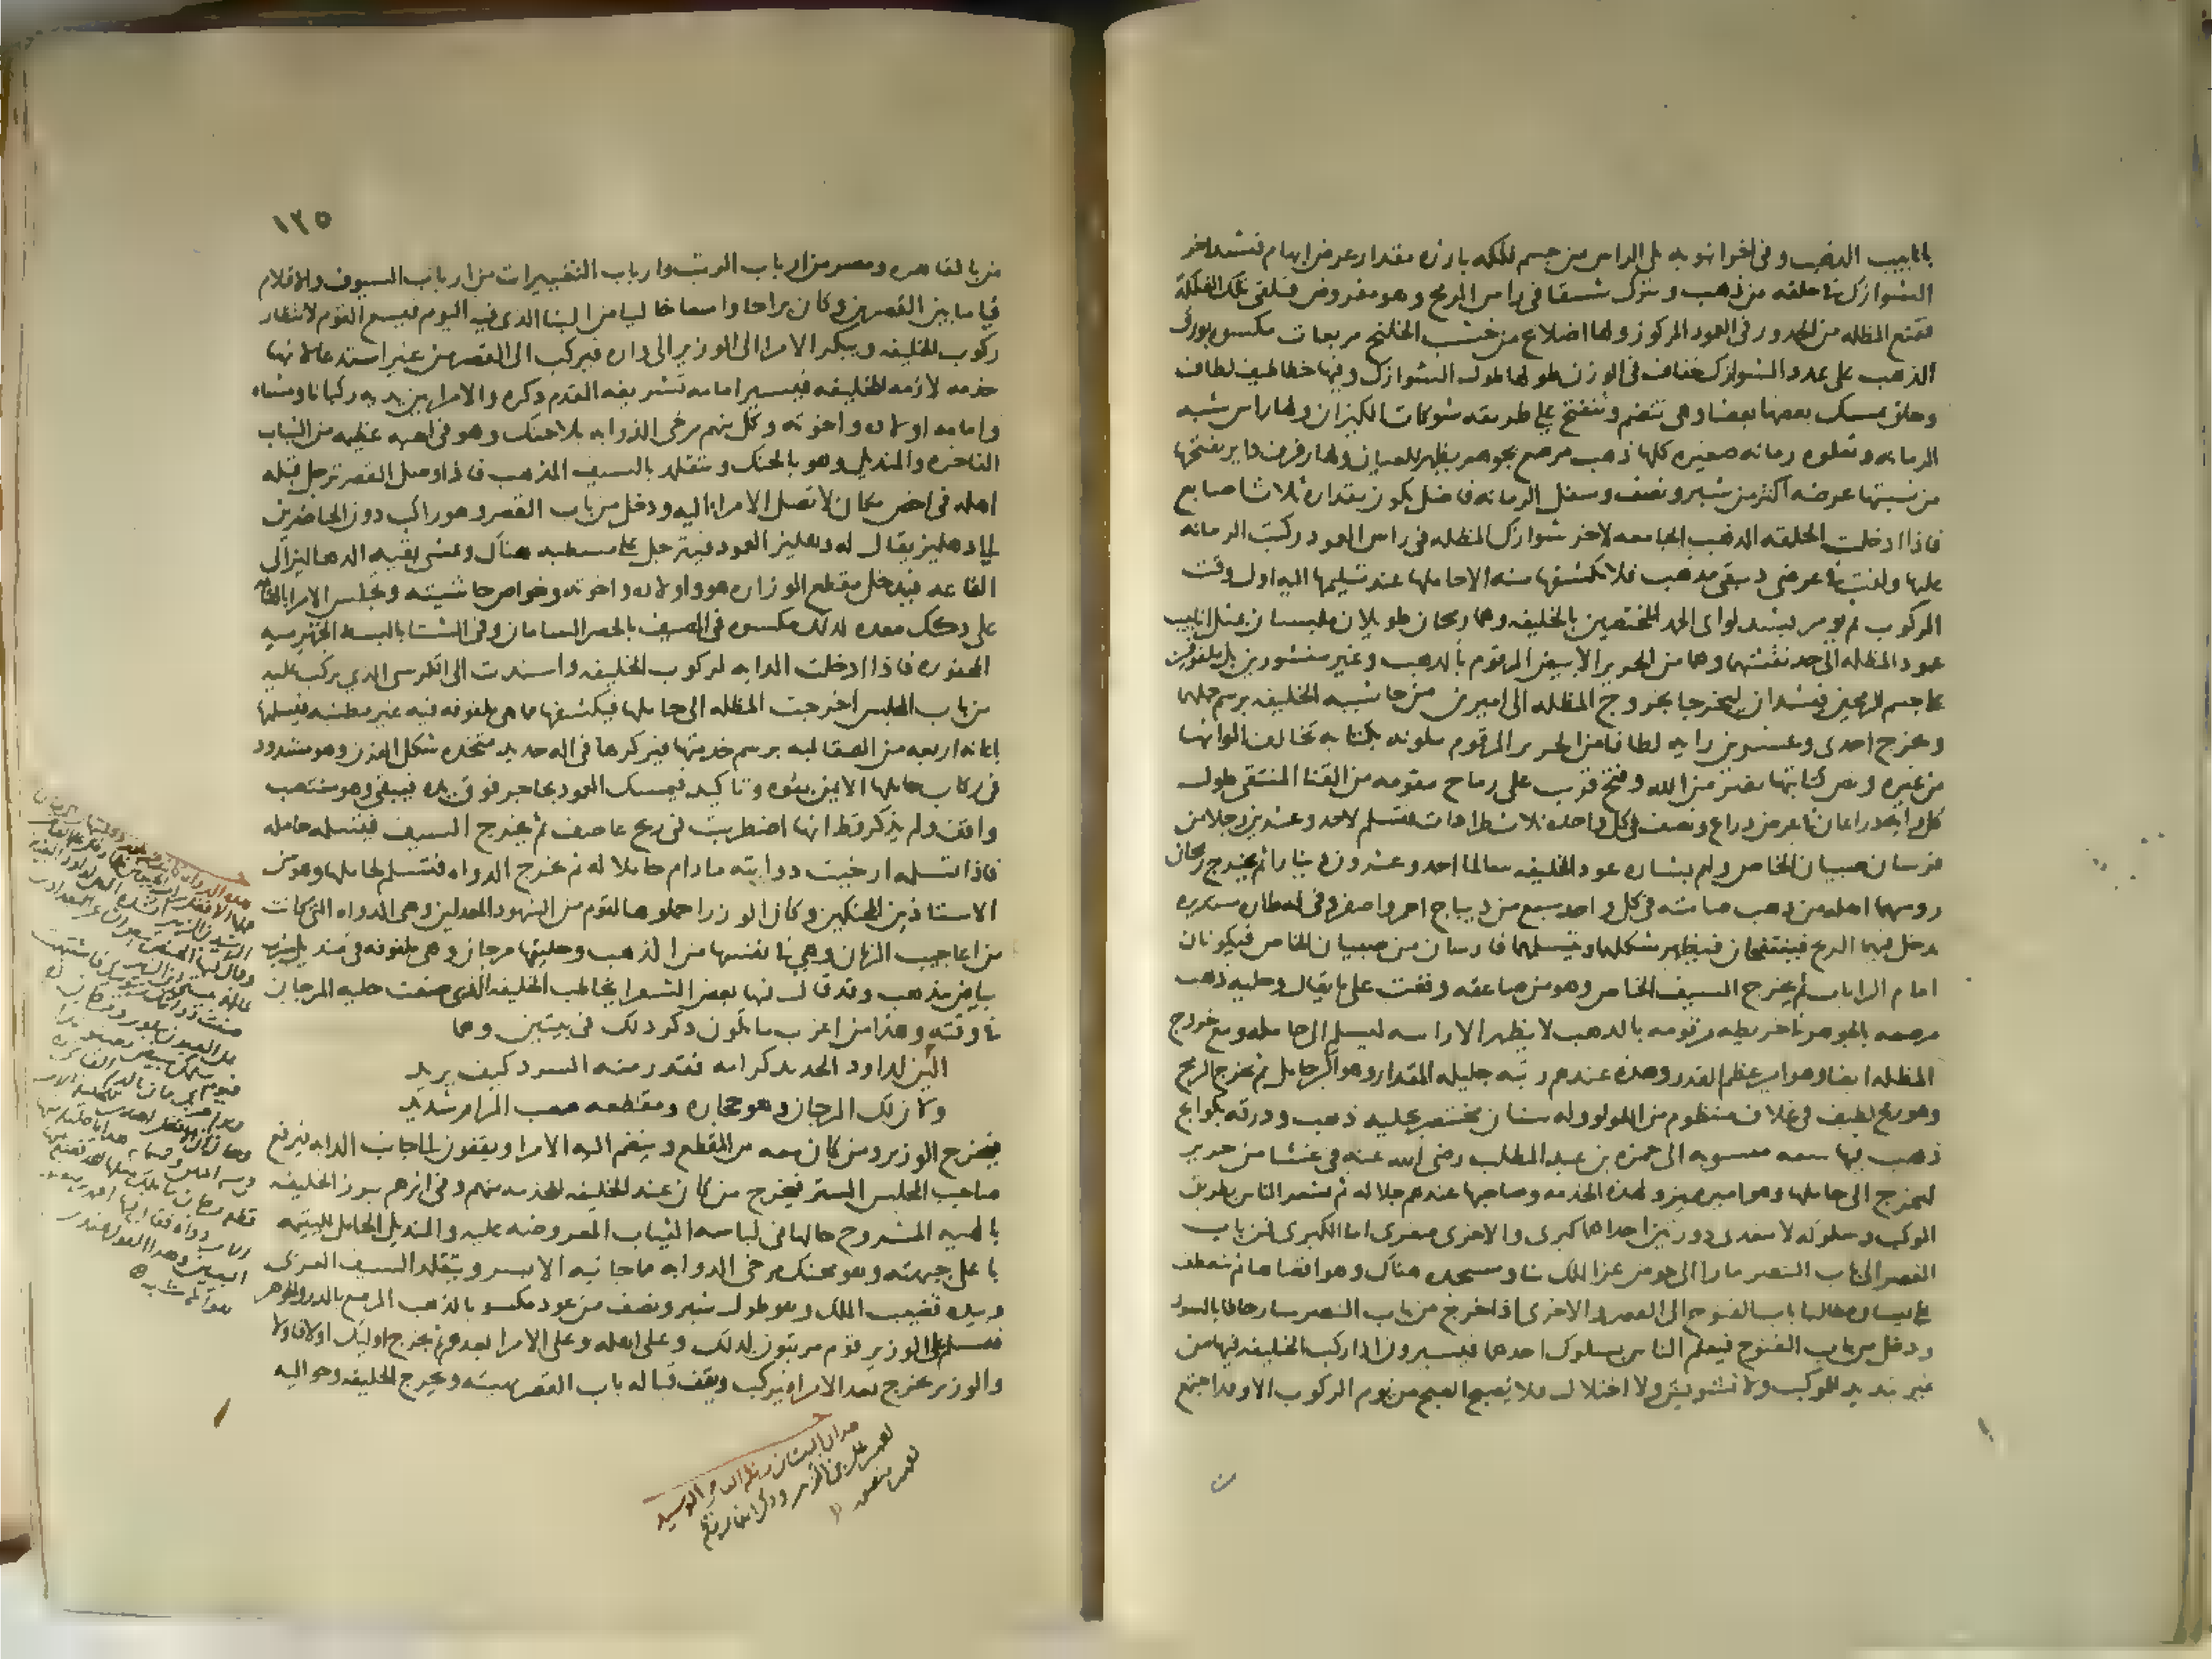 بانابيب الذهب وفى اخر انبوبه تلى الراس من جسم فلكه بارزه مقدار عرض ابهام فيشد اخر
الشوازك فى حلقه من ذهب ويترك متسعا فى راس الرمح وهو مفروض فتلقى تلك الفلكة
فتمنع المظله من الحدور فى العمود المركوز ولها اضلاع من خشب الخلنج مربعات مكسوه بورق
الذهب على عدد الشوازك خفاف فى الوزن طولها طول الشوازك وفيها خطاطيف لطاف
وحلق يمسك بعضها بعضا وهى تنضم وتنفتح على طريقه شوكات الكيزان ولها راس شبه
الرمانه ويعلوه رمانه صغيره كلها ذهب مرصع بجوهر يظهر للعيان ولها رفرف داير يفتحها
من نسبتها عرضه اكثر من شبر ونصف وسفل الرمانه فاصل يكون مقداره ثلاث اصابع
فاذا ادخلت الحلقه الذهب الجامعه لاخر شوازك المظله فى راس العمود ركبت الرمانه
عليها ولفت فى عرضى دبيقى مذهب فلا يكشفها منه الا حاملها عند تسليمها اليه اول وقت
الركوب ثم يومر بشد لواى الحمد المختصين بالخليفه وهما رمحان طويلان ملبسان بمثل انابيب
عمود المظله الى حد نقشتهما وهما من الحرير الابيض المرقوم بالذهب وغير منشورين بل ملفوفين
على جسم الرمحين فيشدان ليخرجا بخروج المظله الى اميرين من حاشيه الخليفه برسم حملهما
ويخرج احدى وعشرين رايه لطافا من الحرير المرقوم ملونه بكتابه تخالف الوانها
من غيره ونص كتابتها نصر من الله وفتح قريب على رماح مقومه من القنا المنتقى طول
كل رايه ذراعان فى عرض ذراع ونصف فى كل واحده ثلاث طرازات فتسلم لاحد وعشرين رجلا من
فرسان صبيان الخاص ولهم بشاره عود الخليفه سالما احد وعشرون دينارا ثم يخرج رمحان
روسهما اهله من ذهب صامته فى كل واحد سبع من ديباج احمر واصفر وفى فمه طاره مستديره
يدخل فيها الريح فينفتحان فيظهر شكلهما ويتسلمهما فارسان من صبيان الخاص فيكونان
امام الرايات ثم يخرج السيف الخاص وهو من صاعقه وقعت على ما يقال وحليه ذهب
مرصعه بالجوهر فى خريطه مرقومه بالذهب لا يظهر الا راسه ليسلم الى حامله وهو مع خروج
المظله ايضا وهو امير عظيم القدر وهذه عندهم رتبه جليله المقدار وهو اكبر حامل ثم يخرج الرمح
وهو رمح لطيف فى غلاف منظوم من اللولو وله سنان مختصر بحليه ذهب ودرقه بكوابج
ذهب فيها سعه منسوبه الى حمزه بن عبد المطلب رضى الله عنه فى غشا من حرير
ليخرج الى حاملها وهو امير مميز ولهذه الخدمه وصاحبها عندهم جلاله ثم تشعر الناس بطريق
الموكب وسلوكه لا يتعدى دورتين احداهما كبرى والاخرى صغرى اما الكبرى فمن باب
القصر الى باب النصر مارا الى حوض عز الملك نبا ومسجده هناك وهو اقصاها ثم ينعطف
على يساره طالبا باب الفتوح الى القصر والاخرى اذا خرج من باب النصر سار حافا بالسور
ودخل من باب الفتوح فيعلم الناس بسلوك احداهما فيسيرون اذا ركب الخليفه فيها من
غير تبديد للموكب ولا تشويش ولا اختلال فلا يصبح الصبح من يوم الركوب الا وقد اجتمع
١٢٥
من بالقاهره ومصر من ارباب الرتب وارباب التمييزات من ارباب السيوف والاقلام
قياما بين القصرين وكان براحا واسعا خاليا من البنا الذى فيه اليوم فيسع القوم لانتظار
ركوب الخليفه ويبكر الامرا الى الوزير الى داره فيركب الى القصر من غير استدعا لانها
خدمه لازمه للخليفه فيسير امامه تشريفه المقدم ذكره والامرا بين يديه ركبانا ومشاه
وامامه اولاده واخوته وكل منهم مرخى الذوابه بلا حنك وهو فى ابهه عظيمه من الثياب
الفاخره والمنديل وهو بالحنك ويتقلد بالسيف المذهب فاذا وصل القصر ترجل قبله
اهله فى اخص مكان لا تصل الامرا اليه ودخل من باب القصر وهو راكب دون الحاضرين
الى دهليز يقال له دهليز العمود فيترجل على مسطبه هناك ويمشى بقيه الدهاليز الى
القاعه فيدخل مقطع الوزاره هو واولاده واخوته وخواص حاشيته ويجلس الامرا بالقاعه
على دكك معده لذلك مكسوه فى الصيف بالحصر السامان وفى الشتا بالبسط الجهرميه
المحفوره فاذا ادخلت الدابه لركوب الخليفه واسندت الى الكرسى الذى يركب عليه
من باب المجلس اخرجت المظله الى حاملها فيكشفها مما هى ملفوفه فيه غير مطبقه فيتسلمها
باعانه اربعه من الصقالبه برسم خدمتها فيركزها فى اله حديد متخذه شكل القرن وهو مشدود
فى ركاب حاملها الايمن بقوه وتاكيد فيمسك العمود بحاجز فوق يده فيبقى وهو منتصب
واقف ولم يذكر قط انها اضطربت فى ريح عاصف ثم يخرج السيف فيتسلمه حامله
فاذا تسلمه ارخيت ذوابته ما دام حاملا له ثم تخرج الدواه فتسلم لحاملها وهو من
الاستاذين المحنكين وكان الوزرا حملوها لقوم من الشهود المعدلين وهى الدواه التى كانت
من اعاجيب الزمان وهى فى نفسها من الذهب وحليتها مرجان وهى ملفوفه فى منديل شرب
بياض مذهب وقد قال فيها بعض الشعرا يخاطب الخليفه الذى صنعت حليه المرجان
فى وقته وهذا من اغرب ما يكون ذكر ذلك فى بيتين وهما
الين لداود الحديد كرامه فقدر منه السرد كيف يريد
ولان لك المرجان وهو حجاره ومقطعه صعب المرام شديد
فيخرج الوزير ومن كان معه من المقطع وينضم اليه الامرا ويقفون الى جانب الدابه فيرفع
صاحب المجلس الستر فيخرج من كان عند الخليفه للخدمه منهم وفى اثرهم يبرز الخليفه
بالهييه المشروح حالها فى لباسه الثياب المعروضه عليه والمنديل الحامل لليتيمه
باعلى جبهته وهو محنك مرخى الذوابه مما جانبه الايسر ويتقلد السيف العربى
وبيده قضيب الملك وهو طول شبر ونصف من عود مكسو بالذهب المرصع بالدر والجوهر
فيسلم على الوزير قوم مرتبون لذلك وعلى اهله وعلى الامرا بعدهم ثم يخرج اوليك اولا فاولا
والوزير يخرج بعد الامرا فيركب ويقف قباله باب القصر بهيئته ويخرج الخليفه وحواليه